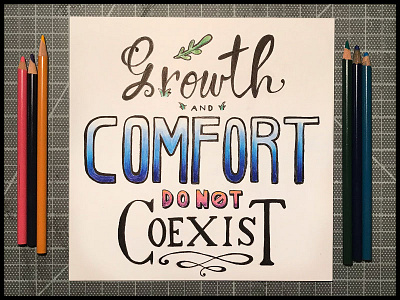 Growth
AND
COMFORT
DO NOT
COEXIST